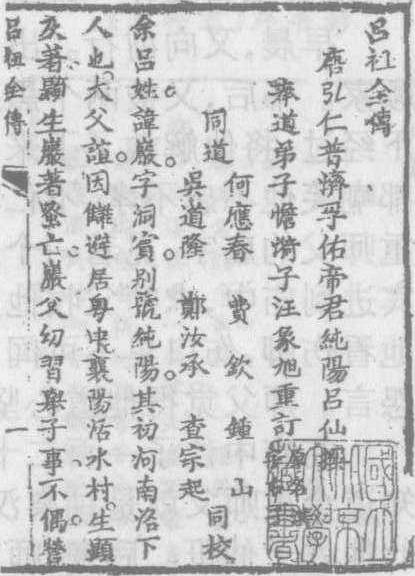 呂祖全傳
唐弘仁普濟孚佑帝君純陽呂仙撰
奉道弟子憺漪子汪象旭重訂
何應春 費欽 鍾山
同道 同校
吳道隆 鄭汝承 查宗起
余呂姓諱巖字洞賓别號純陽其初河南洛下
人也大父誼因饑避居粵中襄陽活水村生顯
及著顯生巖著蚤亡巖父幼習舉子事不偶營
呂祖全傳
一